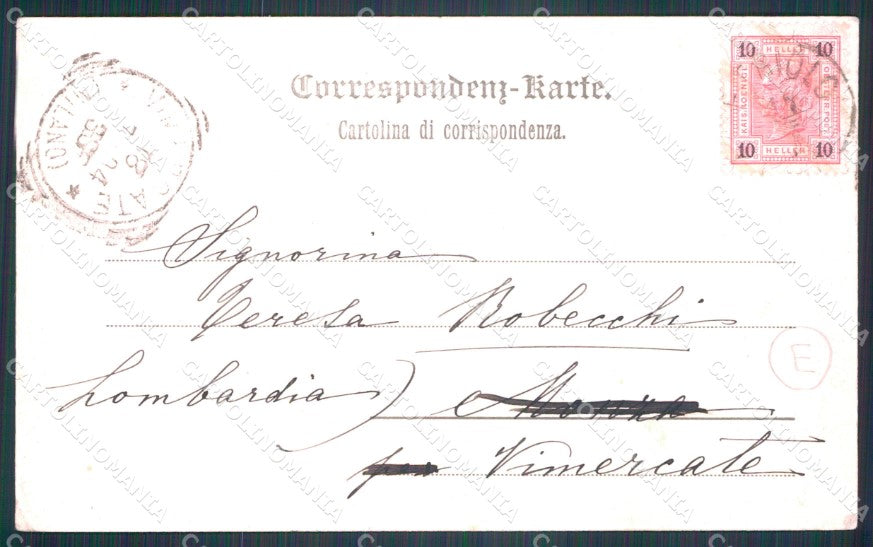 Correspondenz-Karte.
Cartolina di corrispondenza.
10 HELLER 10
KAIS. KOENIGL.
10 HELLER 10
Signorina
Teresa Robecchi
Lombardia) Monza
per Vimercate
E
CARTOLINOMANIA